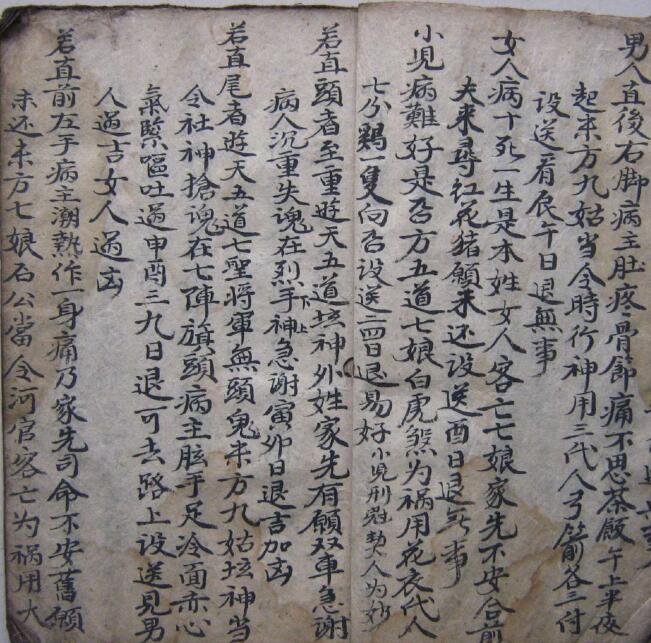 男人直後右脚病主肚疼骨節痛不思茶飯午上半夜
起来方九姑当令時行神用三代人弓箭各三付
設送看辰午日退無事
女人病十死一生是本姓女人客亡七娘家先不安合前
夫来尋红花猪願未还設送酉日退無事
小児病難好是方五道七娘白虎煞为祸用花衣代人
七分鷄一隻向設送二四日退易好小児刑尅契人为妙
若直頭者至重遊天五道坛神外姓家先有願双車急謝
病人沉重失魂在烈手下神上急謝寅卯日退吉加凶
若直尾者遊天五道七聖將軍無頭鬼来方九姑坛神当
令社神搶魂在七陣旗頭病主眩手足冷面赤心
氣緊嘔吐過申酉三九日退可去路上設送見男
人過吉女人過凶
若直前左手病主潮熱作一身痛乃家先司命不安舊願
未还来方七娘石公當令河官客亡为祸用大